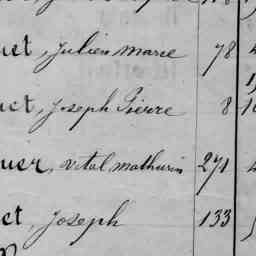 uet, Julien Marie 78
uet, Joseph Pierre 8
uer, Vital Mathurin 271
et, Joseph 133